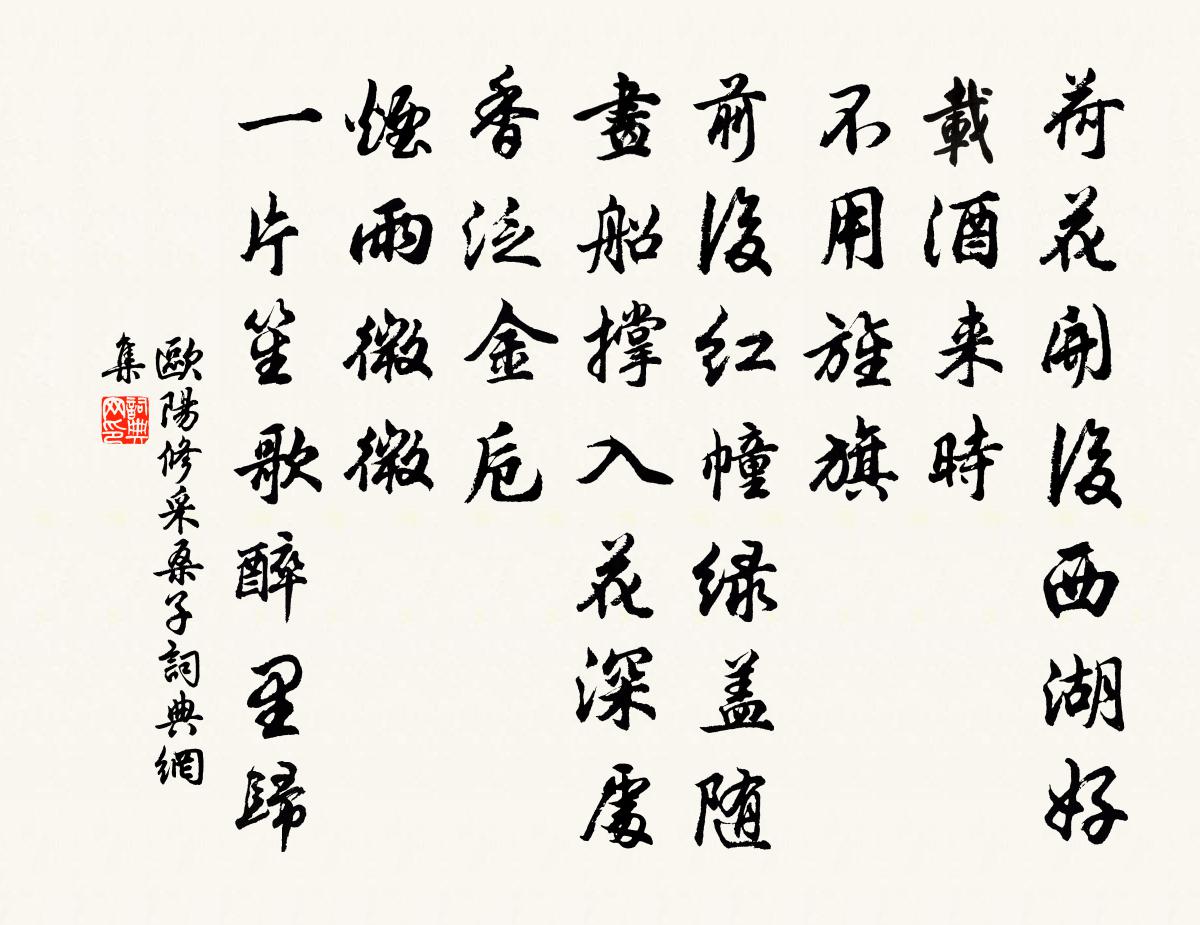 荷花開後西湖好
載酒来時
不用旌旗
前後红幢绿盖随
畫船撐入花深處
香泛金卮
煙雨微微
一片笙歌醉里歸
歐陽修采桑子詞典網
集
詞典网印